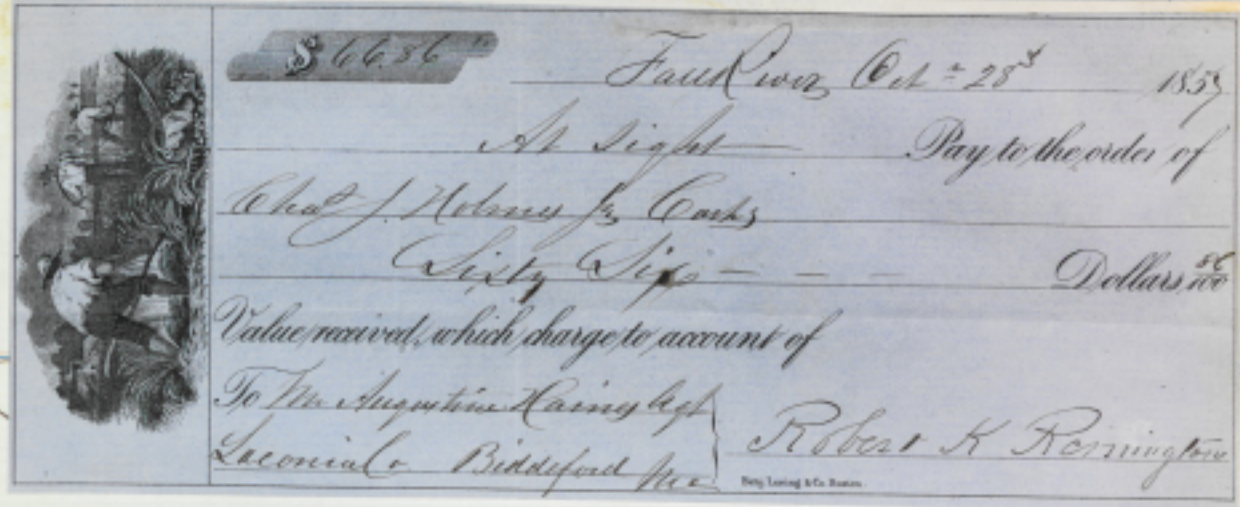 $ 66.56
Fall River, Oct 28 1857
At Sight Pay to the order of
Chas J. Holmes Jr, Cash,
Sixty Six - - - Dollars, 56/100
Value received, which charge to account of
To Mr Augustine Haines Agt
Laconia Co Biddeford Me
Robert K Remington
Benj. Loring & Co. Boston